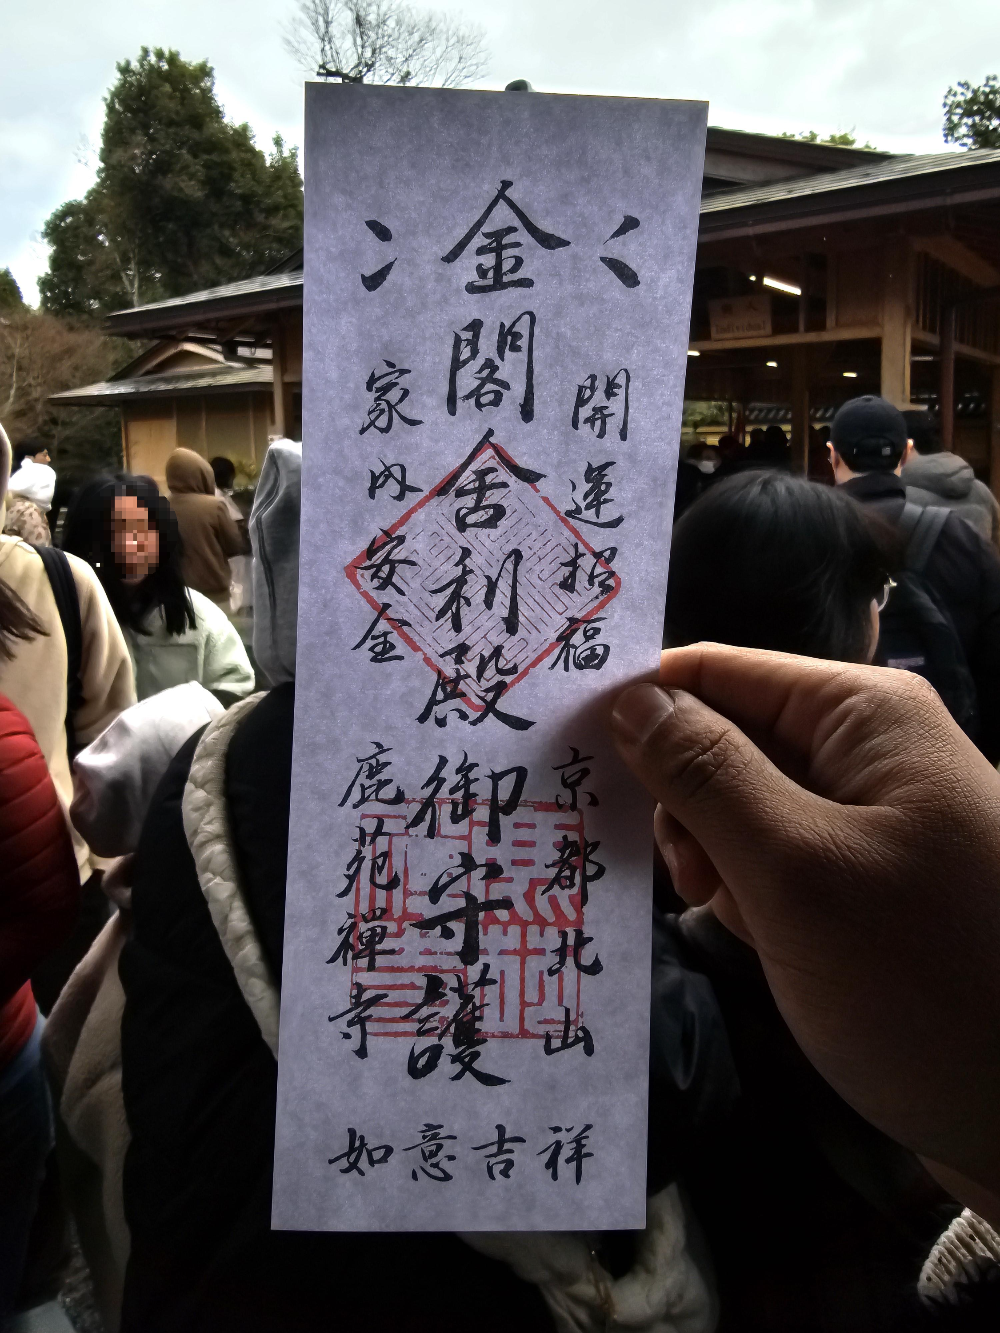 開運招福
京都北山
金閣舍利殿御守護
家内安全
鹿苑禅寺
如意吉祥
個人
Individual